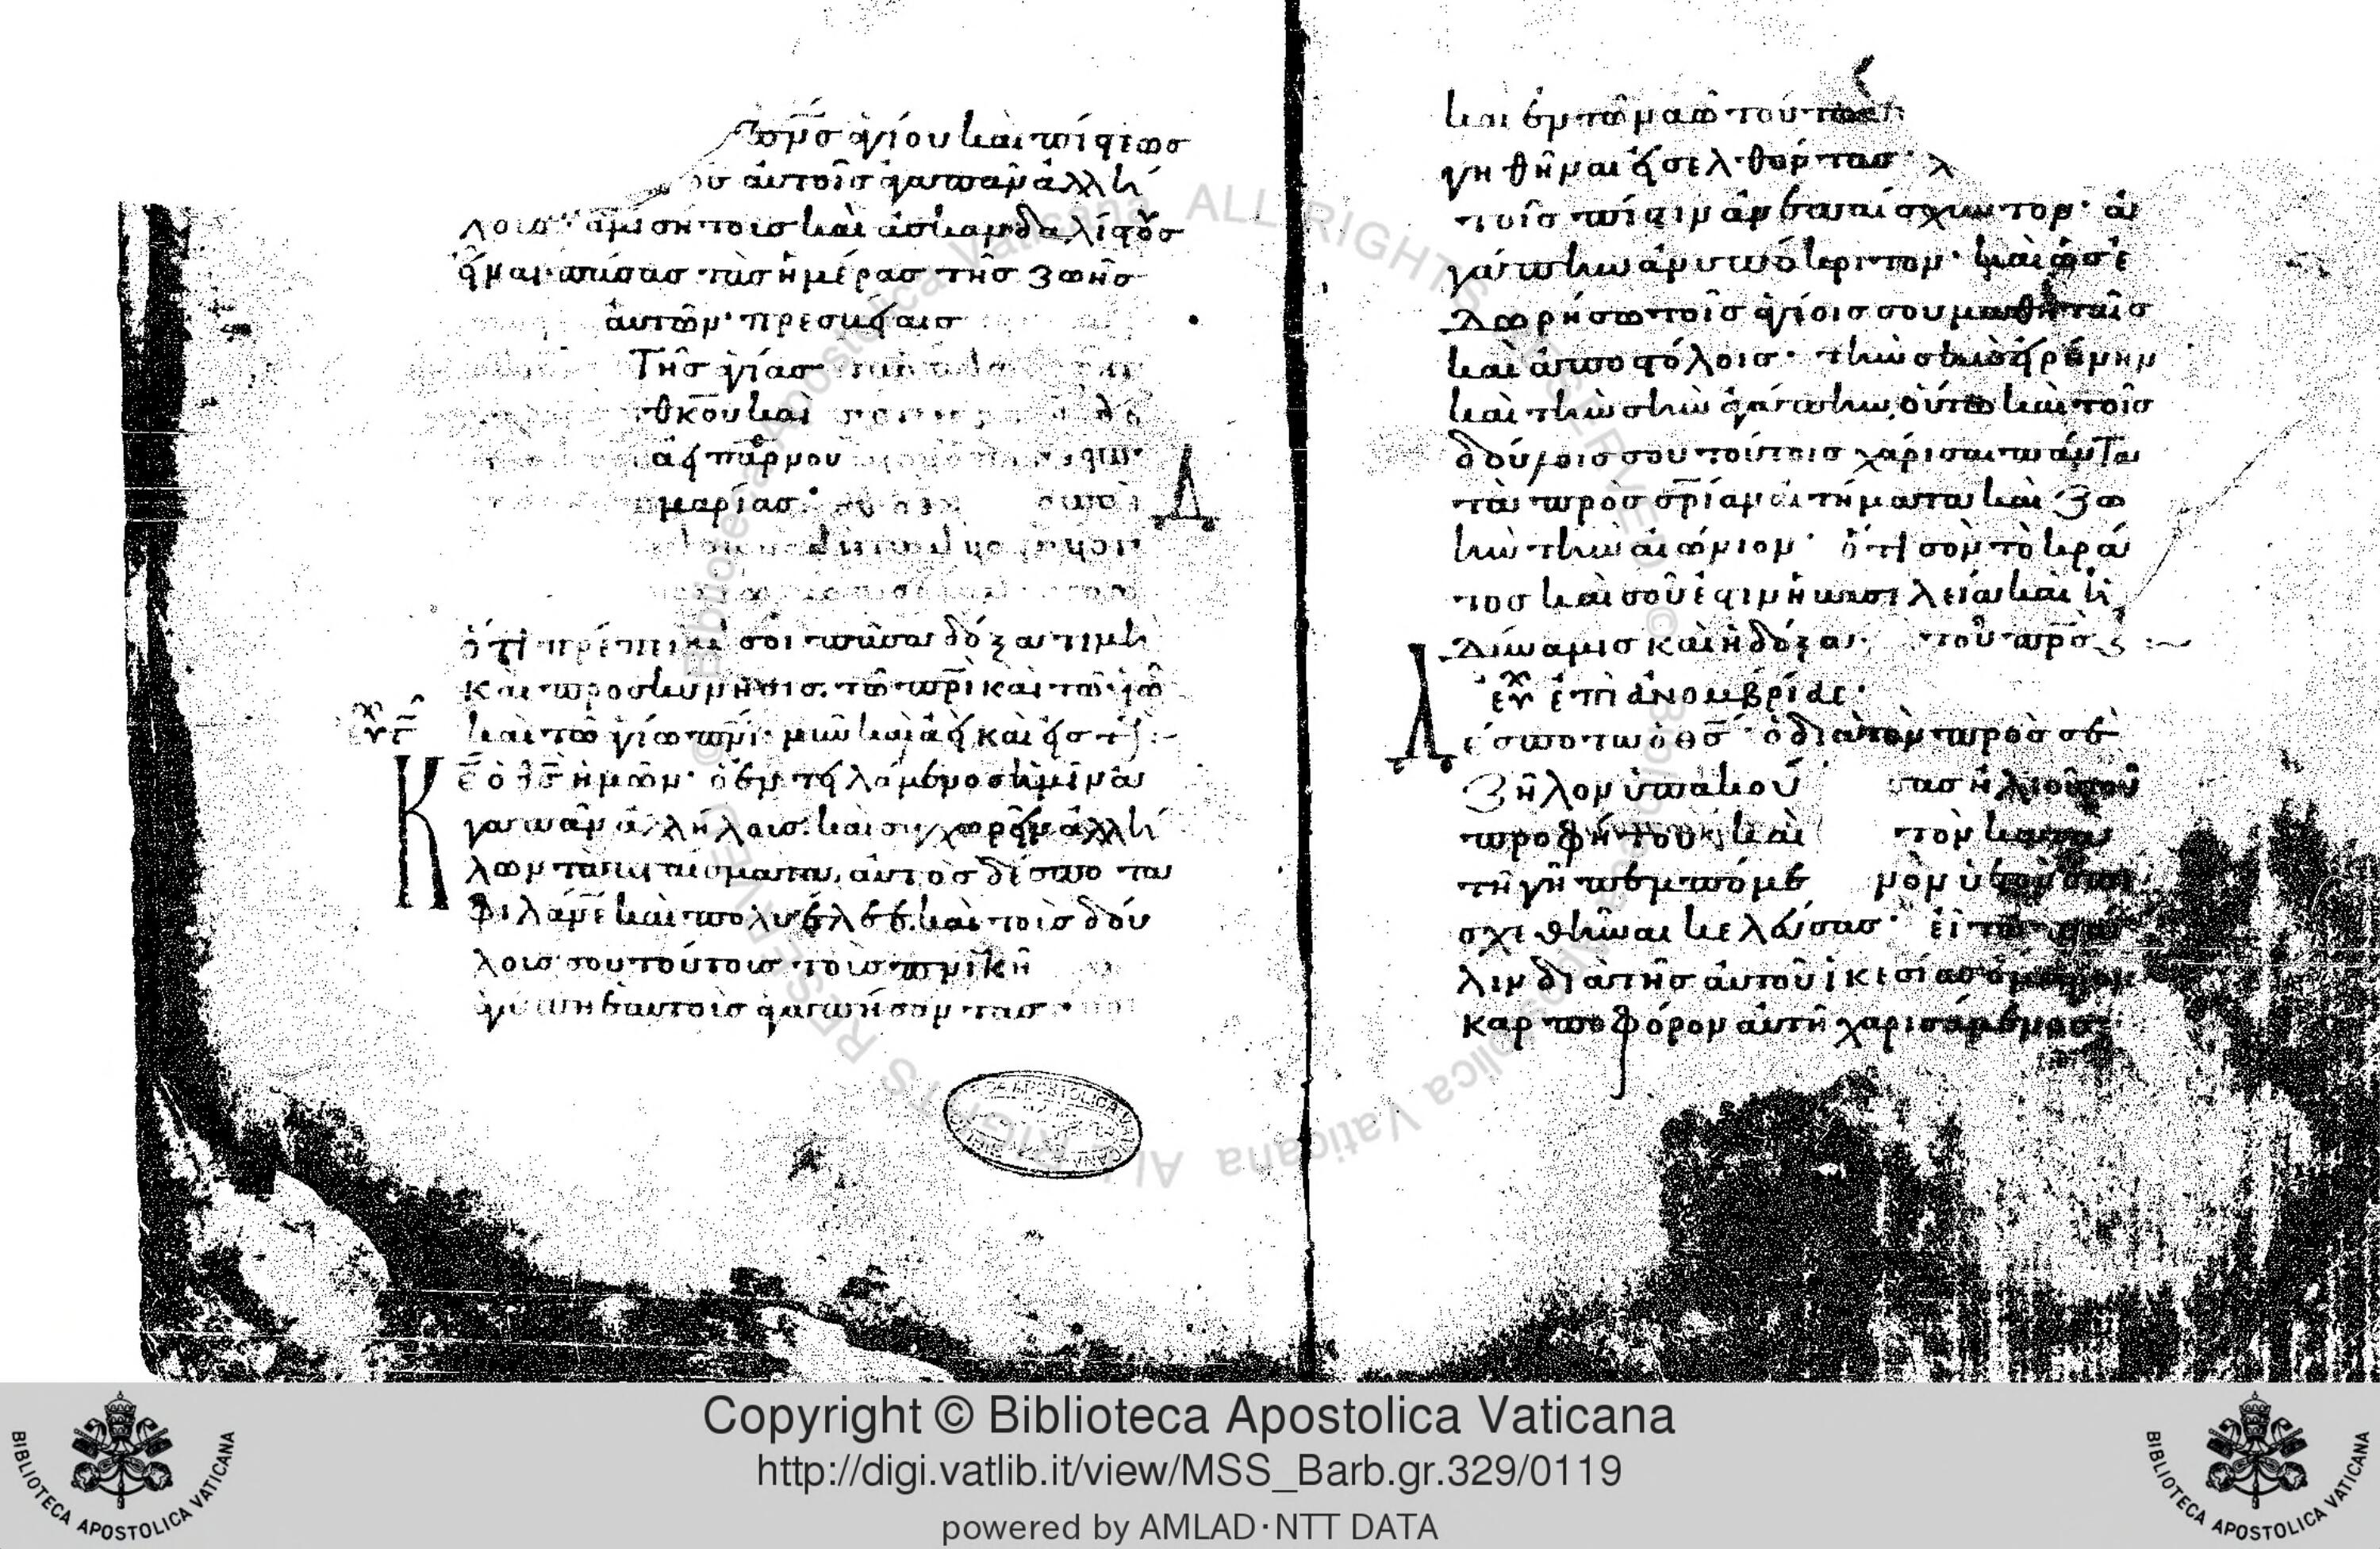 πνσ ἁγίου καὶ πίστεως
αὐτοῖς ἀγαπᾶν ἀλλή
λοις ἀμισήτοις καὶ ἀσκανδαλίστους
εἶναι πάσας τὰς ἡμέρας τῆς ζωῆς
αὐτῶν· πρεσβείαις
Τῆς ἁγίας
θκου καὶ
ἀειπαρθένου
μαρίας·
ὅτι πρέπει σοι πᾶσα δόξα τιμὴ
καὶ προσκύνησις. τῶ πρι καὶ τῶ υἱῶ
καὶ τῶ ἁγίω πνι· νῦν καὶ ἀεὶ καὶ εἰς τ
Κε ὁ θς ἡμῶν· ὁ ἐντειλάμενος ἡμῖν ἀ
γαπᾶν ἀλλήλοις· καὶ συγχωρεῖν ἀλλή
λων τὰ πταίσματα, αὐτὸς δέσποτα
φιλάνε καὶ πολυέλεε. καὶ τοῖς δού
λοις σου τούτοις τοῖς πνικῆ
ἀγάπη ἑαυτοῖς ἀγαπήσαντας·
καὶ ἐν τῶ ναῶ τούτω
γηθῆναι εἰσελθόντας·
τοῖς πίστιν ἀνεπαίσχυντον· ἀ
γάπην ἀνυπόκριτον· καὶ ὡς ἐ
δωρήσω τοῖς ἁγίοις σου μαθηταῖς
καὶ ἀποστόλοις· τὴν σὴν εἰρήνην
καὶ τὴν σὴν ἀγάπην, οὕτω καὶ τοῖς
δούλοις σου τούτοις χάρισαι πάντα
τὰ πρὸς σρίαν αἰτήματα καὶ ζω
ὴν τὴν αἰώνιον· ὅτι σὸν τὸ κρά
τος καὶ σοῦ ἐστιν ἡ βασιλεία καὶ ἡ
δύναμις καὶ ἡ δόξα· τοῦ πρσ
εὐχ ἐπὶ ἀνομβρίας·
Δέσποτα ὁ θς ὁ διὰ τὸν πρὸς σὲ
ζῆλον ὑπακού σας ἠλιοῦ τοῦ
προφήτου καὶ τὸν κατὰ
τῆ γῆ πεμπόμε νον ὑετὸν ἐπι
σχεθῆναι κελεύσας· εἶτα πά
λιν διὰ τῆς αὐτοῦ ἱκεσίας ὄμβρον
καρποφόρον αὐτῆ χαρισάμενος
Copyright © Biblioteca Apostolica Vaticana
http://digi.vatlib.it/view/MSS_Barb.gr.329/0119
powered by AMLAD·NTT DATA
BIBLIOTECA APOSTOLICA VATICANA
BIBLIOTECA APOSTOLICA VATICANA